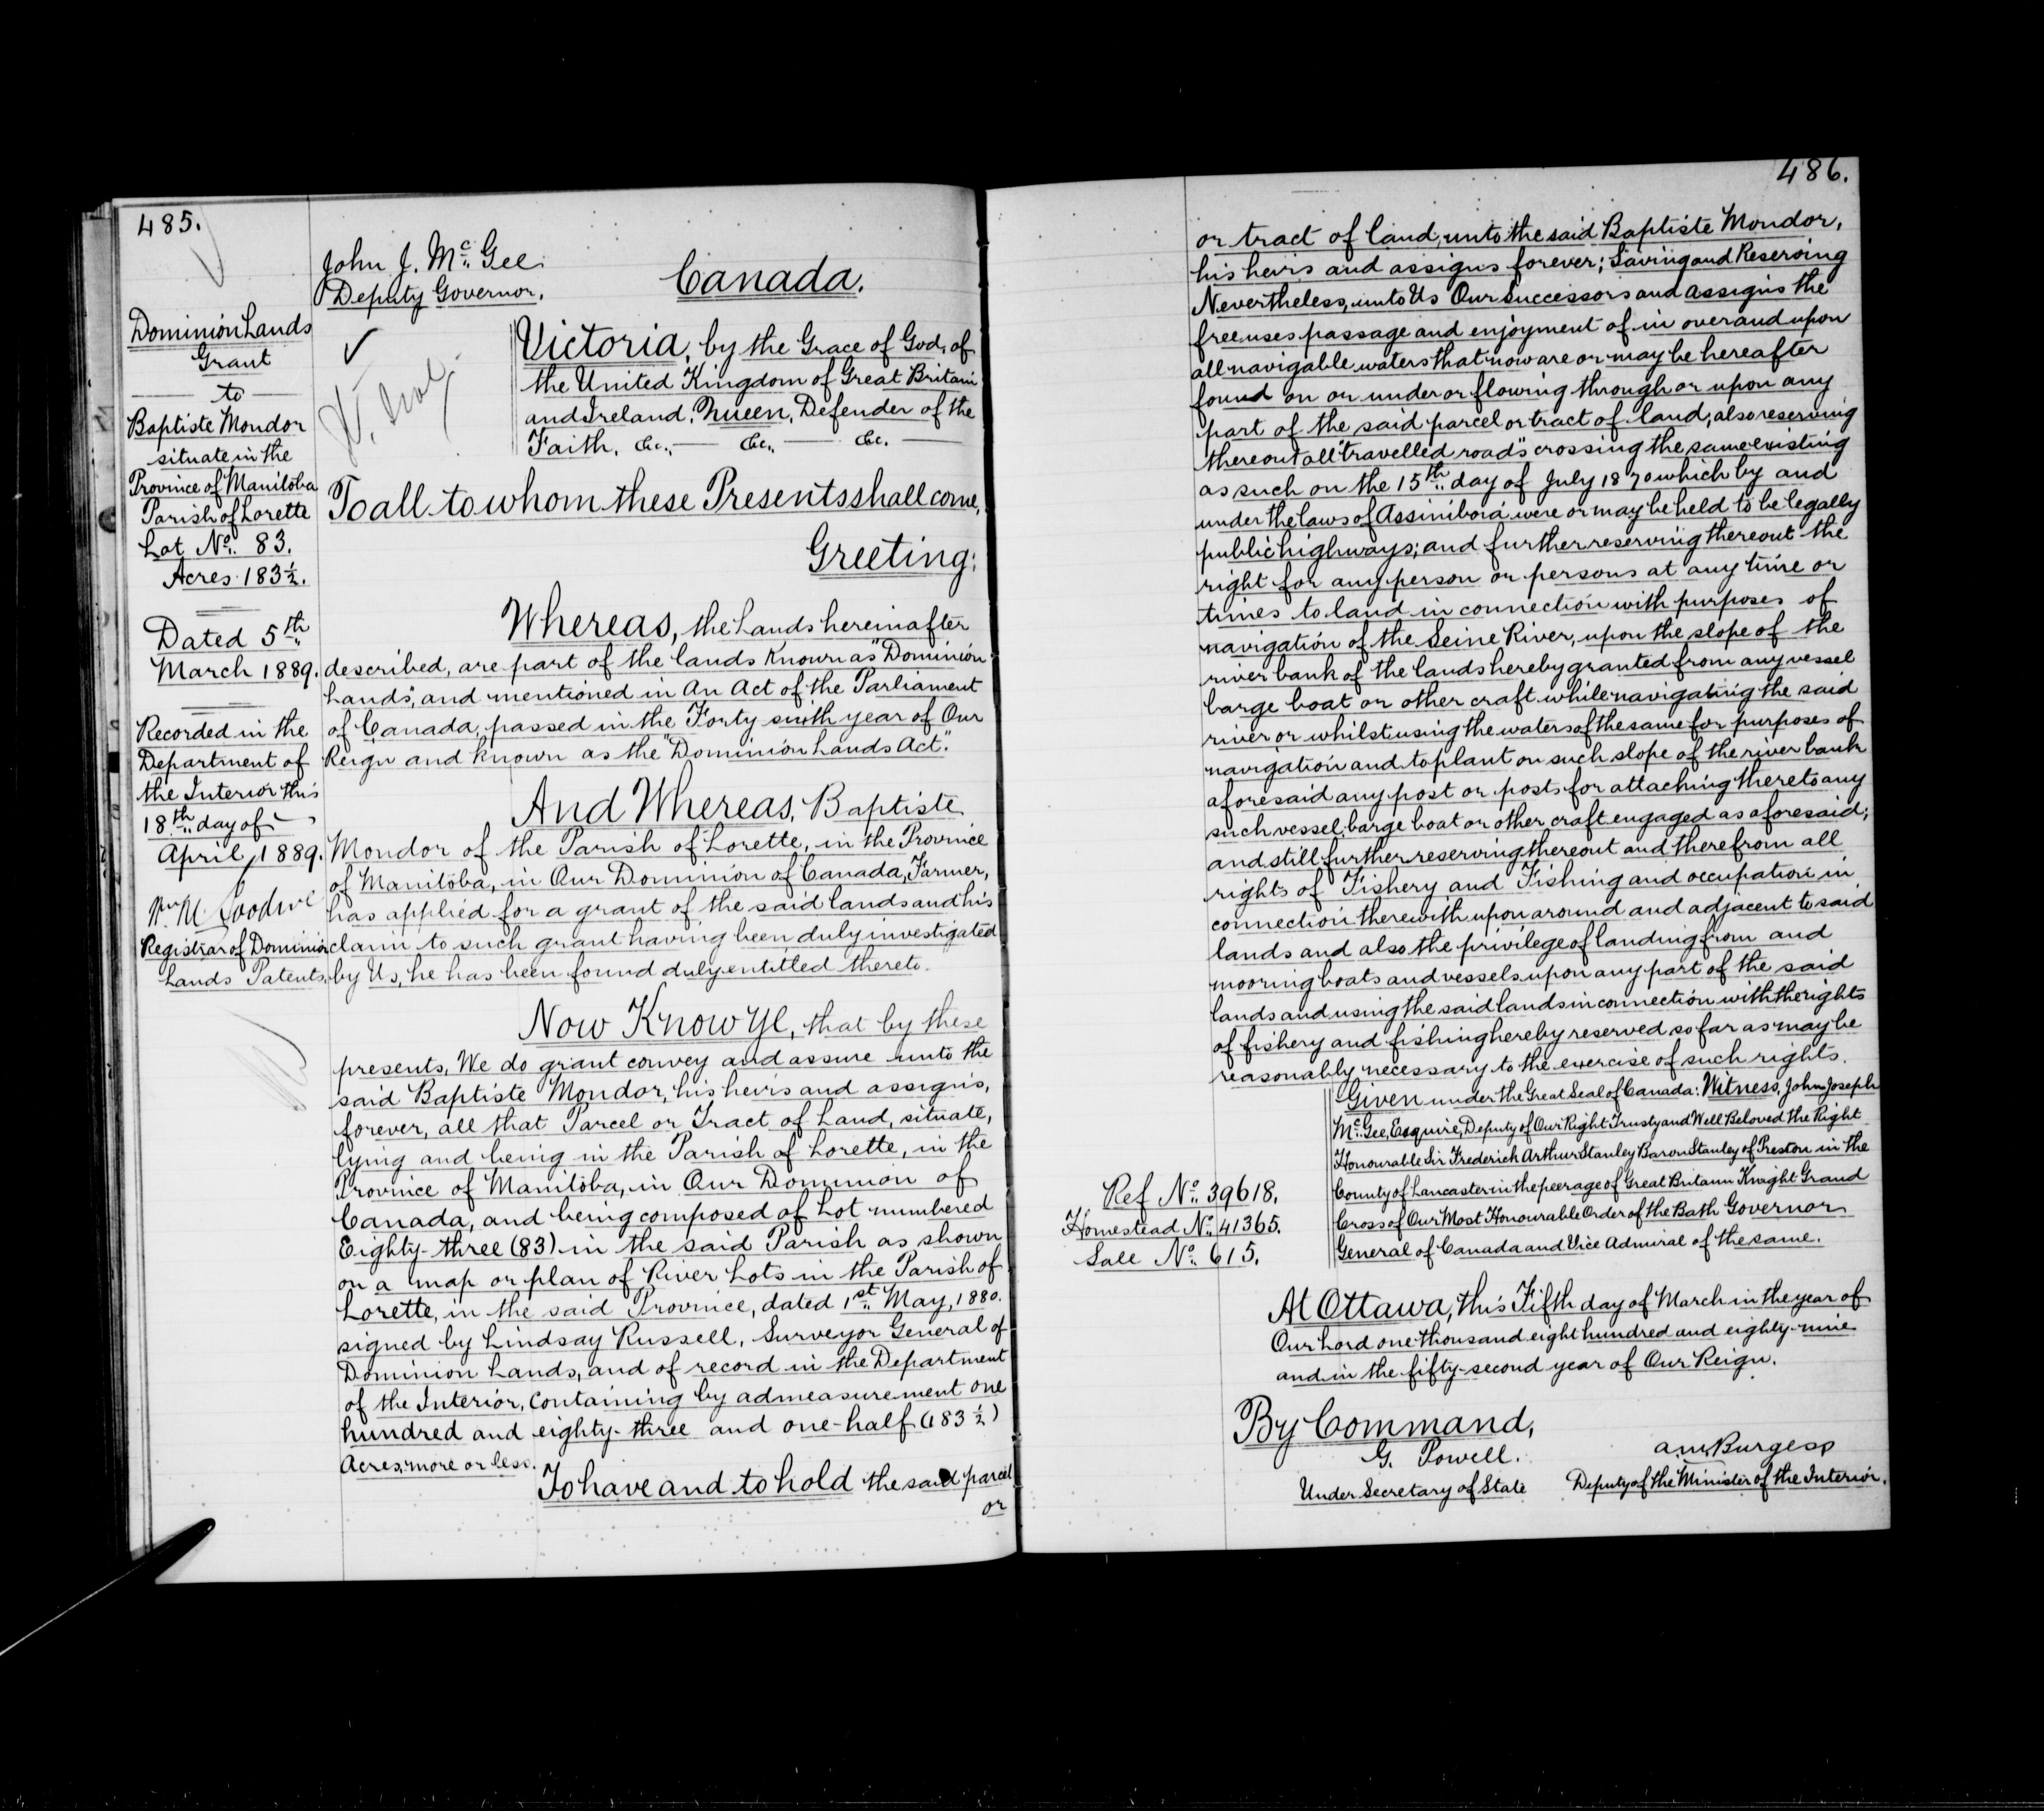 485.
Dominion Lands
Grant
to
Baptiste Mondor
situate in the
Province of Manitoba
Parish of Lorette
Lot No. 83.
Acres 183½.
Dated 5th
March 1889.
Recorded in the
Department of
the Interior this
18th day of
April, 1889.
Registrar of Dominion
Lands Patents.
John J. McGee
Deputy Governor.
Canada.
Victoria, by the Grace of God, of
the United Kingdom of Great Britain
and Ireland, Queen, Defender of the
Faith, &c., — &c., — &c. —
To all to whom these Presents shall come,
Greeting:
Whereas, the Lands hereinafter
described, are part of the lands known as "Dominion
Lands", and mentioned in An Act of the Parliament
of Canada, passed in the Forty sixth year of Our
Reign and known as the "Dominion Lands Act".
And Whereas, Baptiste
Mondor of the Parish of Lorette, in the Province
of Manitoba, in Our Dominion of Canada, Farmer,
has applied for a grant of the said lands and his
claim to such grant having been duly investigated
by Us, he has been found duly entitled thereto.
Now Know Ye, that by these
presents, We do grant convey and assure unto the
said Baptiste Mondor, his heirs and assigns,
forever, all that Parcel or Tract of Land, situate,
lying and being in the Parish of Lorette, in the
Province of Manitoba, in Our Dominion of
Canada, and being composed of Lot numbered
Eighty-three (83) in the said Parish as shown
on a map or plan of River Lots in the Parish of
Lorette, in the said Province, dated 1st May, 1880.
signed by Lindsay Russell, Surveyor General of
Dominion Lands, and of record in the Department
of the Interior, containing by admeasurement one
hundred and eighty-three and one-half (183½)
Acres, more or less.
To have and to hold the said parcel
or
486.
or tract of land, unto the said Baptiste Mondor,
his heirs and assigns forever; Saving and Reserving
Nevertheless, unto Us Our Successors and Assigns the
free uses passage and enjoyment of in over and upon
all navigable waters that now are or may be hereafter
found on or under or flowing through or upon any
part of the said parcel or tract of land; also reserving
thereout all "travelled roads" crossing the same existing
as such on the 15th day of July 1870 which by and
under the laws of Assiniboia were or may be held to be legally
public highways; and further reserving thereout the
right for any person or persons at any time or
times to land in connection with purposes of
navigation of the Seine River, upon the slope of the
river bank of the lands hereby granted from any vessel
barge boat or other craft while navigating the said
river or whilst using the waters of the same for purposes of
navigation and to plant on such slope of the river bank
aforesaid any post or posts for attaching thereto any
such vessel, barge boat or other craft engaged as aforesaid;
and still further reserving thereout and therefrom all
rights of Fishery and Fishing and occupation in
connection therewith upon around and adjacent to said
lands and also the privilege of landing from and
mooring boats and vessels upon any part of the said
lands and using the said lands in connection with the rights
of fishery and fishing hereby reserved so far as may be
reasonably necessary to the exercise of such rights.
Given under the Great Seal of Canada: Witness, John Joseph
McGee, Esquire, Deputy of Our Right Trusty and Well Beloved the Right
Honourable Sir Frederich Arthur Stanley Baron Stanley of Preston in the
County of Lancaster in the peerage of Great Britain Knight Grand
Cross of Our Most Honourable Order of the Bath Governor
General of Canada and Vice Admiral of the same.
Ref No. 39618.
Homestead No. 41365.
Sale No. 615.
At Ottawa, this Fifth day of March in the year of
Our Lord one thousand eight hundred and eighty-nine
and in the fifty-second year of Our Reign.
By Command,
G. Powell.
Under Secretary of State
A M Burgess
Deputy of the Minister of the Interior.